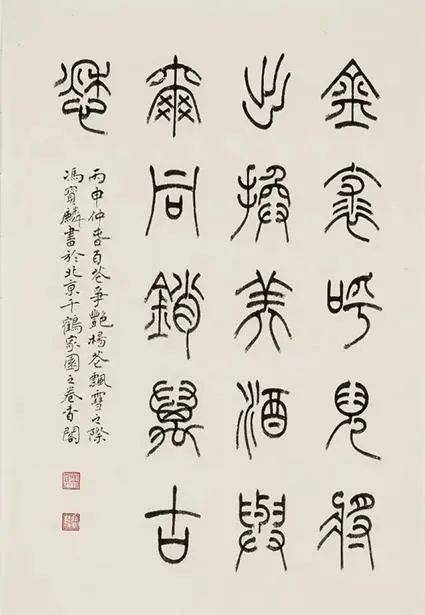 金裘呼兒將
出換美酒與
爾同銷萬古
愁
丙申仲春百花爭艷楊花飄雪之際
馮寶麟書於北京千鶴家園之卷香閣